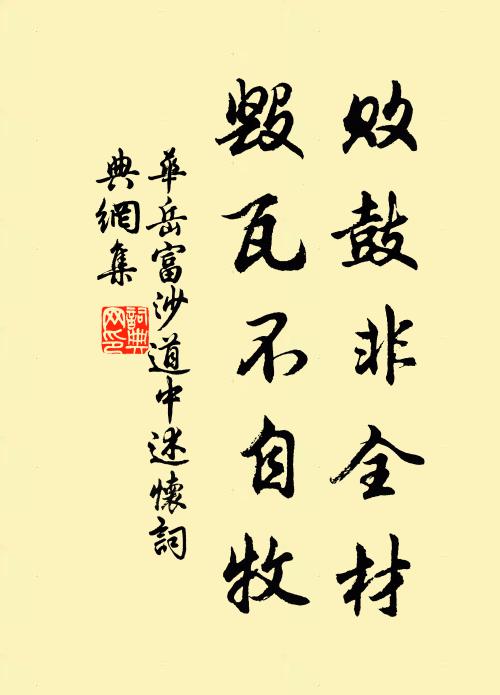 败鼓非全材
毁瓦不自牧
華岳富沙道中述懷詞
典網集
詞典
网印